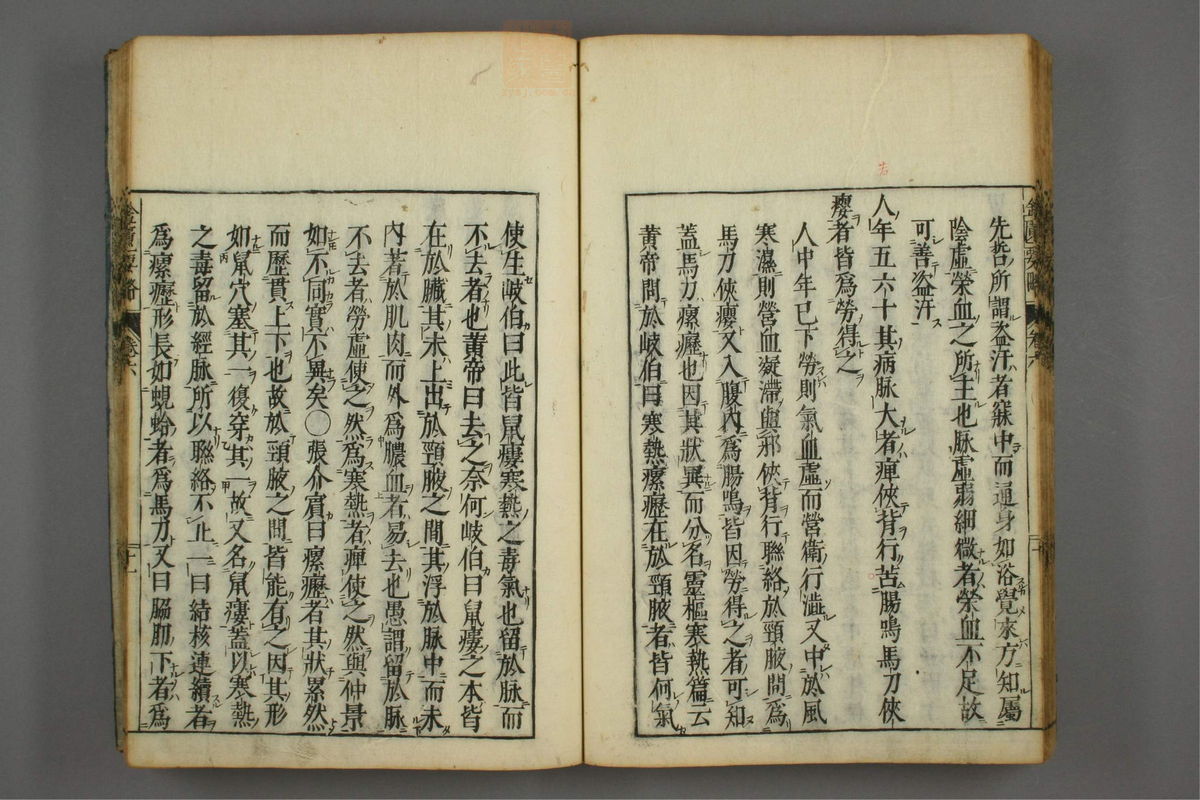 先哲所謂盜汗者寐中而通身如浴覺來方知屬
陰虛榮血之所主也脉虛弱細微者榮血不足故
可善盜汗
人年五六十其病脉大者痺俠背行苦腸鳴馬刀俠
癭者皆爲勞得之
人中年已下勞則氣血虛而營衛行澁又中於風
寒濕則營血凝滯與邪俠背行聯絡於頸腋間爲
馬刀俠癭又入腹內爲腸鳴皆因勞得之者可知
蓋馬刀瘰癧也因其狀異而分名靈樞寒熱篇云
黃帝問於岐伯曰寒熱瘰癧在於頸腋者皆何氣
使生岐伯曰此皆鼠瘻寒熱之毒氣也留於脉而
不去者也黃帝曰去之奈何岐伯曰鼠瘻之本皆
在於臟其末上出於頸腋之間其浮於脉中而未
內著於肌肉而外爲膿血者易去也愚謂留於脉
不去者勞虛使之然爲寒熱者痺使之然與仲景
如不同實不異矣○張介賓曰瘰癧者其狀累然
而歷貫上下也故於頸腋之間皆能有之因其形
如鼠穴塞其一復穿其一故又名鼠瘻蓋以寒熱
之毒留於經脉所以聯絡不止一曰結核連續者
爲瘰癧形長如蜆蛤者爲馬刀又曰脇肋下者爲
金匱要略
卷六
十一